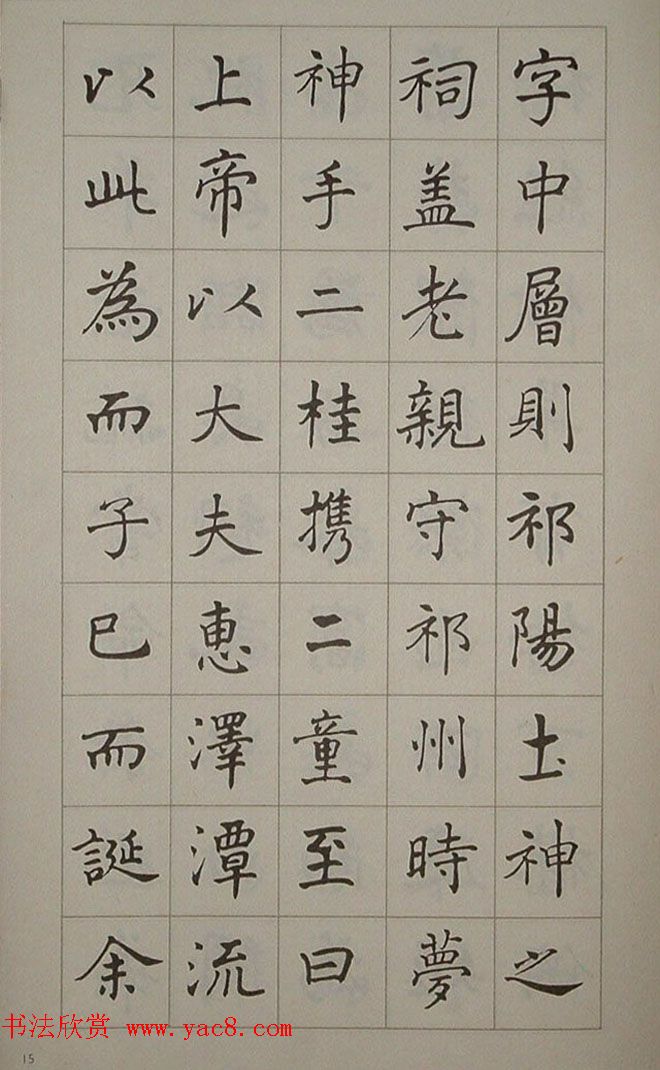 字中層則祁陽土神之
祠盖老親守祁州時夢
神手二桂携二童至曰
上帝以大夫惠澤潭流
以此為而子已而誕余
书法欣赏 www.yac8.com
15